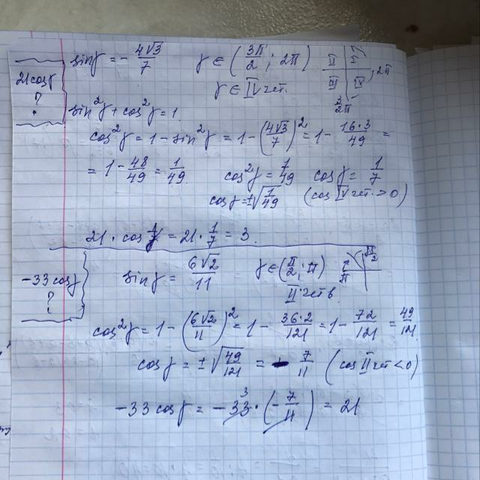 21cosγ
?
sinγ = - 4√3/7   γ ∈ (3π/2; 2π)
γ ∈ IV чет.
II I
III IV 2π
3/2π
sin²γ + cos²γ = 1
cos²γ = 1 - sin²γ = 1 - (4√3/7)² = 1 - 16·3/49 =
= 1 - 48/49 = 1/49   cos²γ = 1/49   cosγ = 1/7
cosγ = ±√1/49   (cos IV чет. > 0)
21 · cosγ = 21 · 1/7 = 3.
-33cosγ
?
sinγ = 6√2/11   γ ∈ (π/2; π)   π/2
π
II четв
cos²γ = 1 - (6√2/11)² = 1 - 36·2/121 = 1 - 72/121 = 49/121
cosγ = ±√49/121 = - 7/11   (cos II чет < 0)
-33 cosγ = -33 · (-7/11) = 21
3